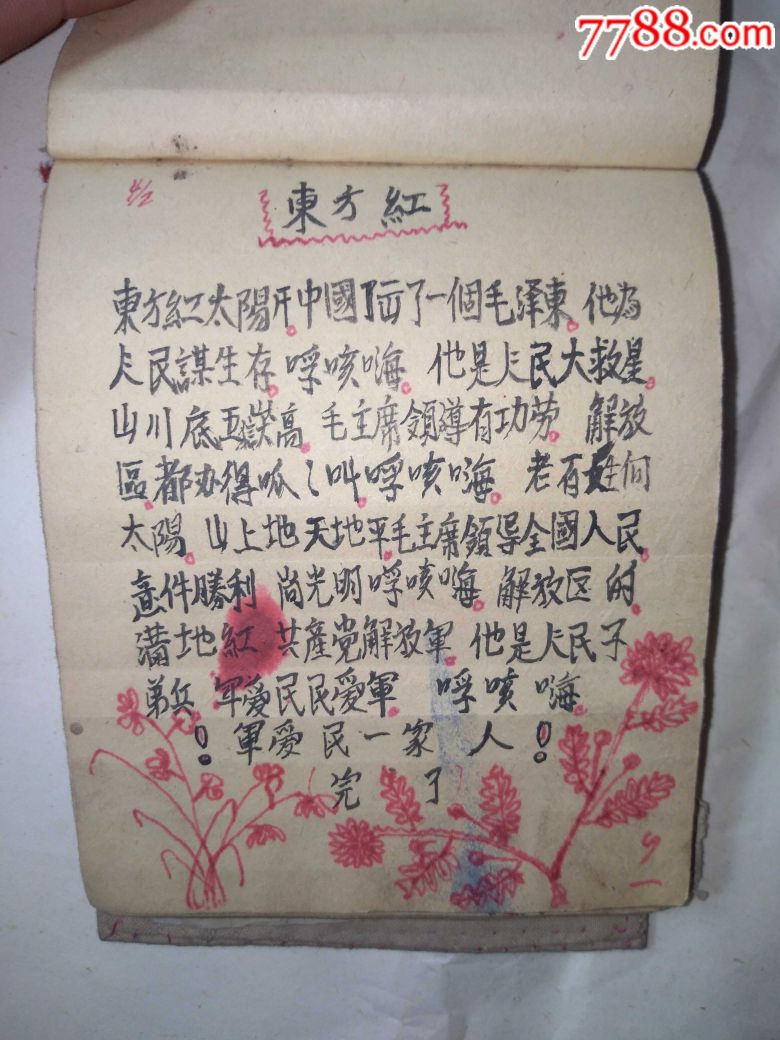 7788.com
東方紅
東方紅太陽升。中國了一個毛泽東。他為
民謀生存。呼咳嗨。他是民大救星。
山川底五嶽高。毛主席領導有功劳。解放
區。都办得呱〻叫。呼咳嗨。老百姓向
太陽。山上地天地平。毛主席領导全國人民。
件勝利尚光明呼咳嗨。解放区的
满地紅共產党解放軍。他是民子
弟兵軍爱民民爱軍。呼嗨。
!軍爱民一家人!
完了